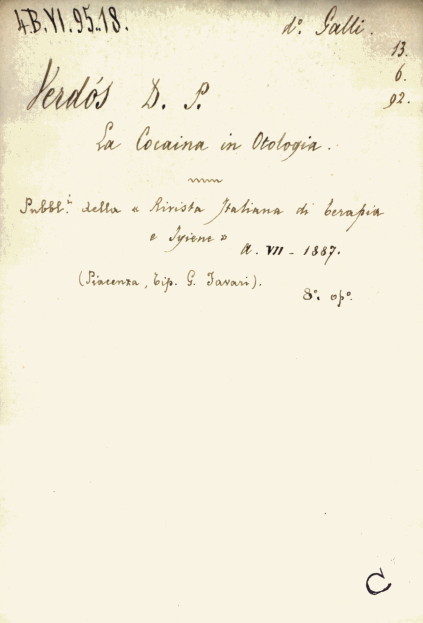 4.B.VI.95.18.
d.° Galli.
13.
6.
92.
Verdós D. P.
La Cocaina in Otologia.
Pubbl.i della « Rivista Italiana di terapia
e Igiene »
A. VII - 1887.
(Piacenza, tip. G. Favari).
8°. op°.
C